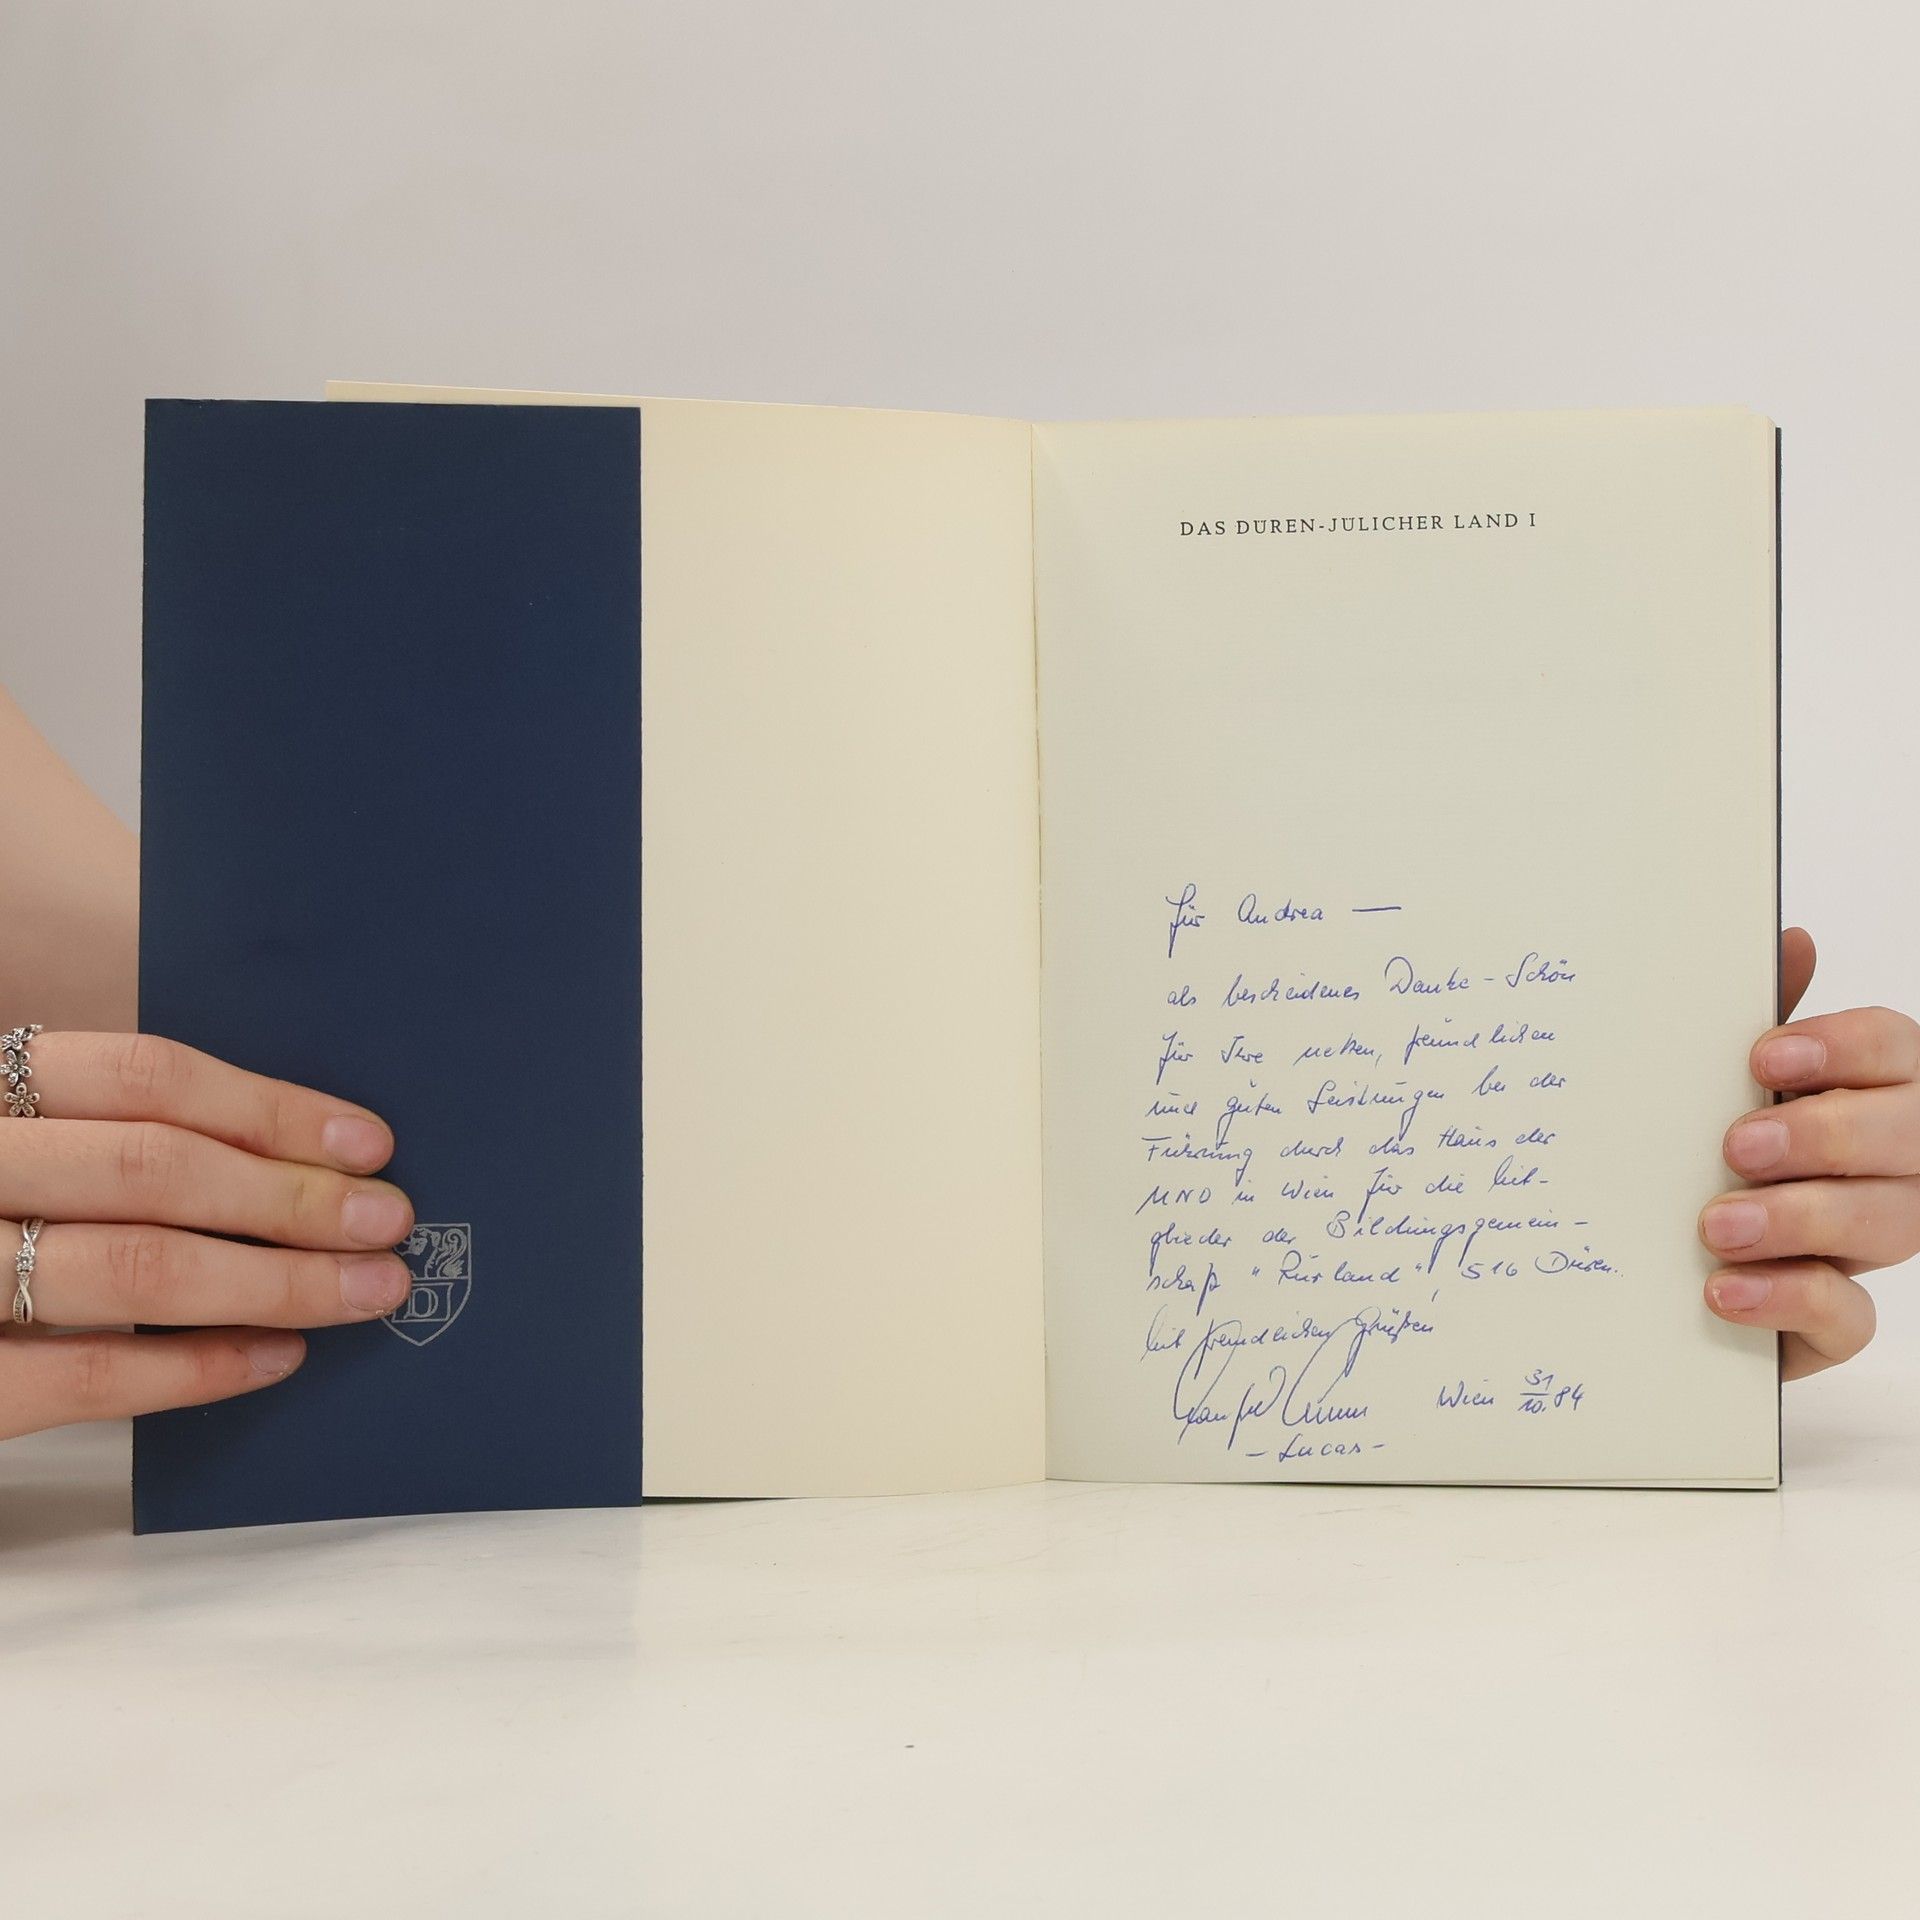 D
DAS DÜREN-JÜLICHER LAND I
für Andrea —
als bescheidenes Danke-Schön
für Ihre netten, freundlichen
und guten Leistungen bei der
Führung durch das Haus der
UNO in Wien für die Mit-
glieder der Bildungsgemein-
schaft "Rurland", 516 Düren.
Mit freundlichen Grüßen
Wien 31/10.84
- Lucas -